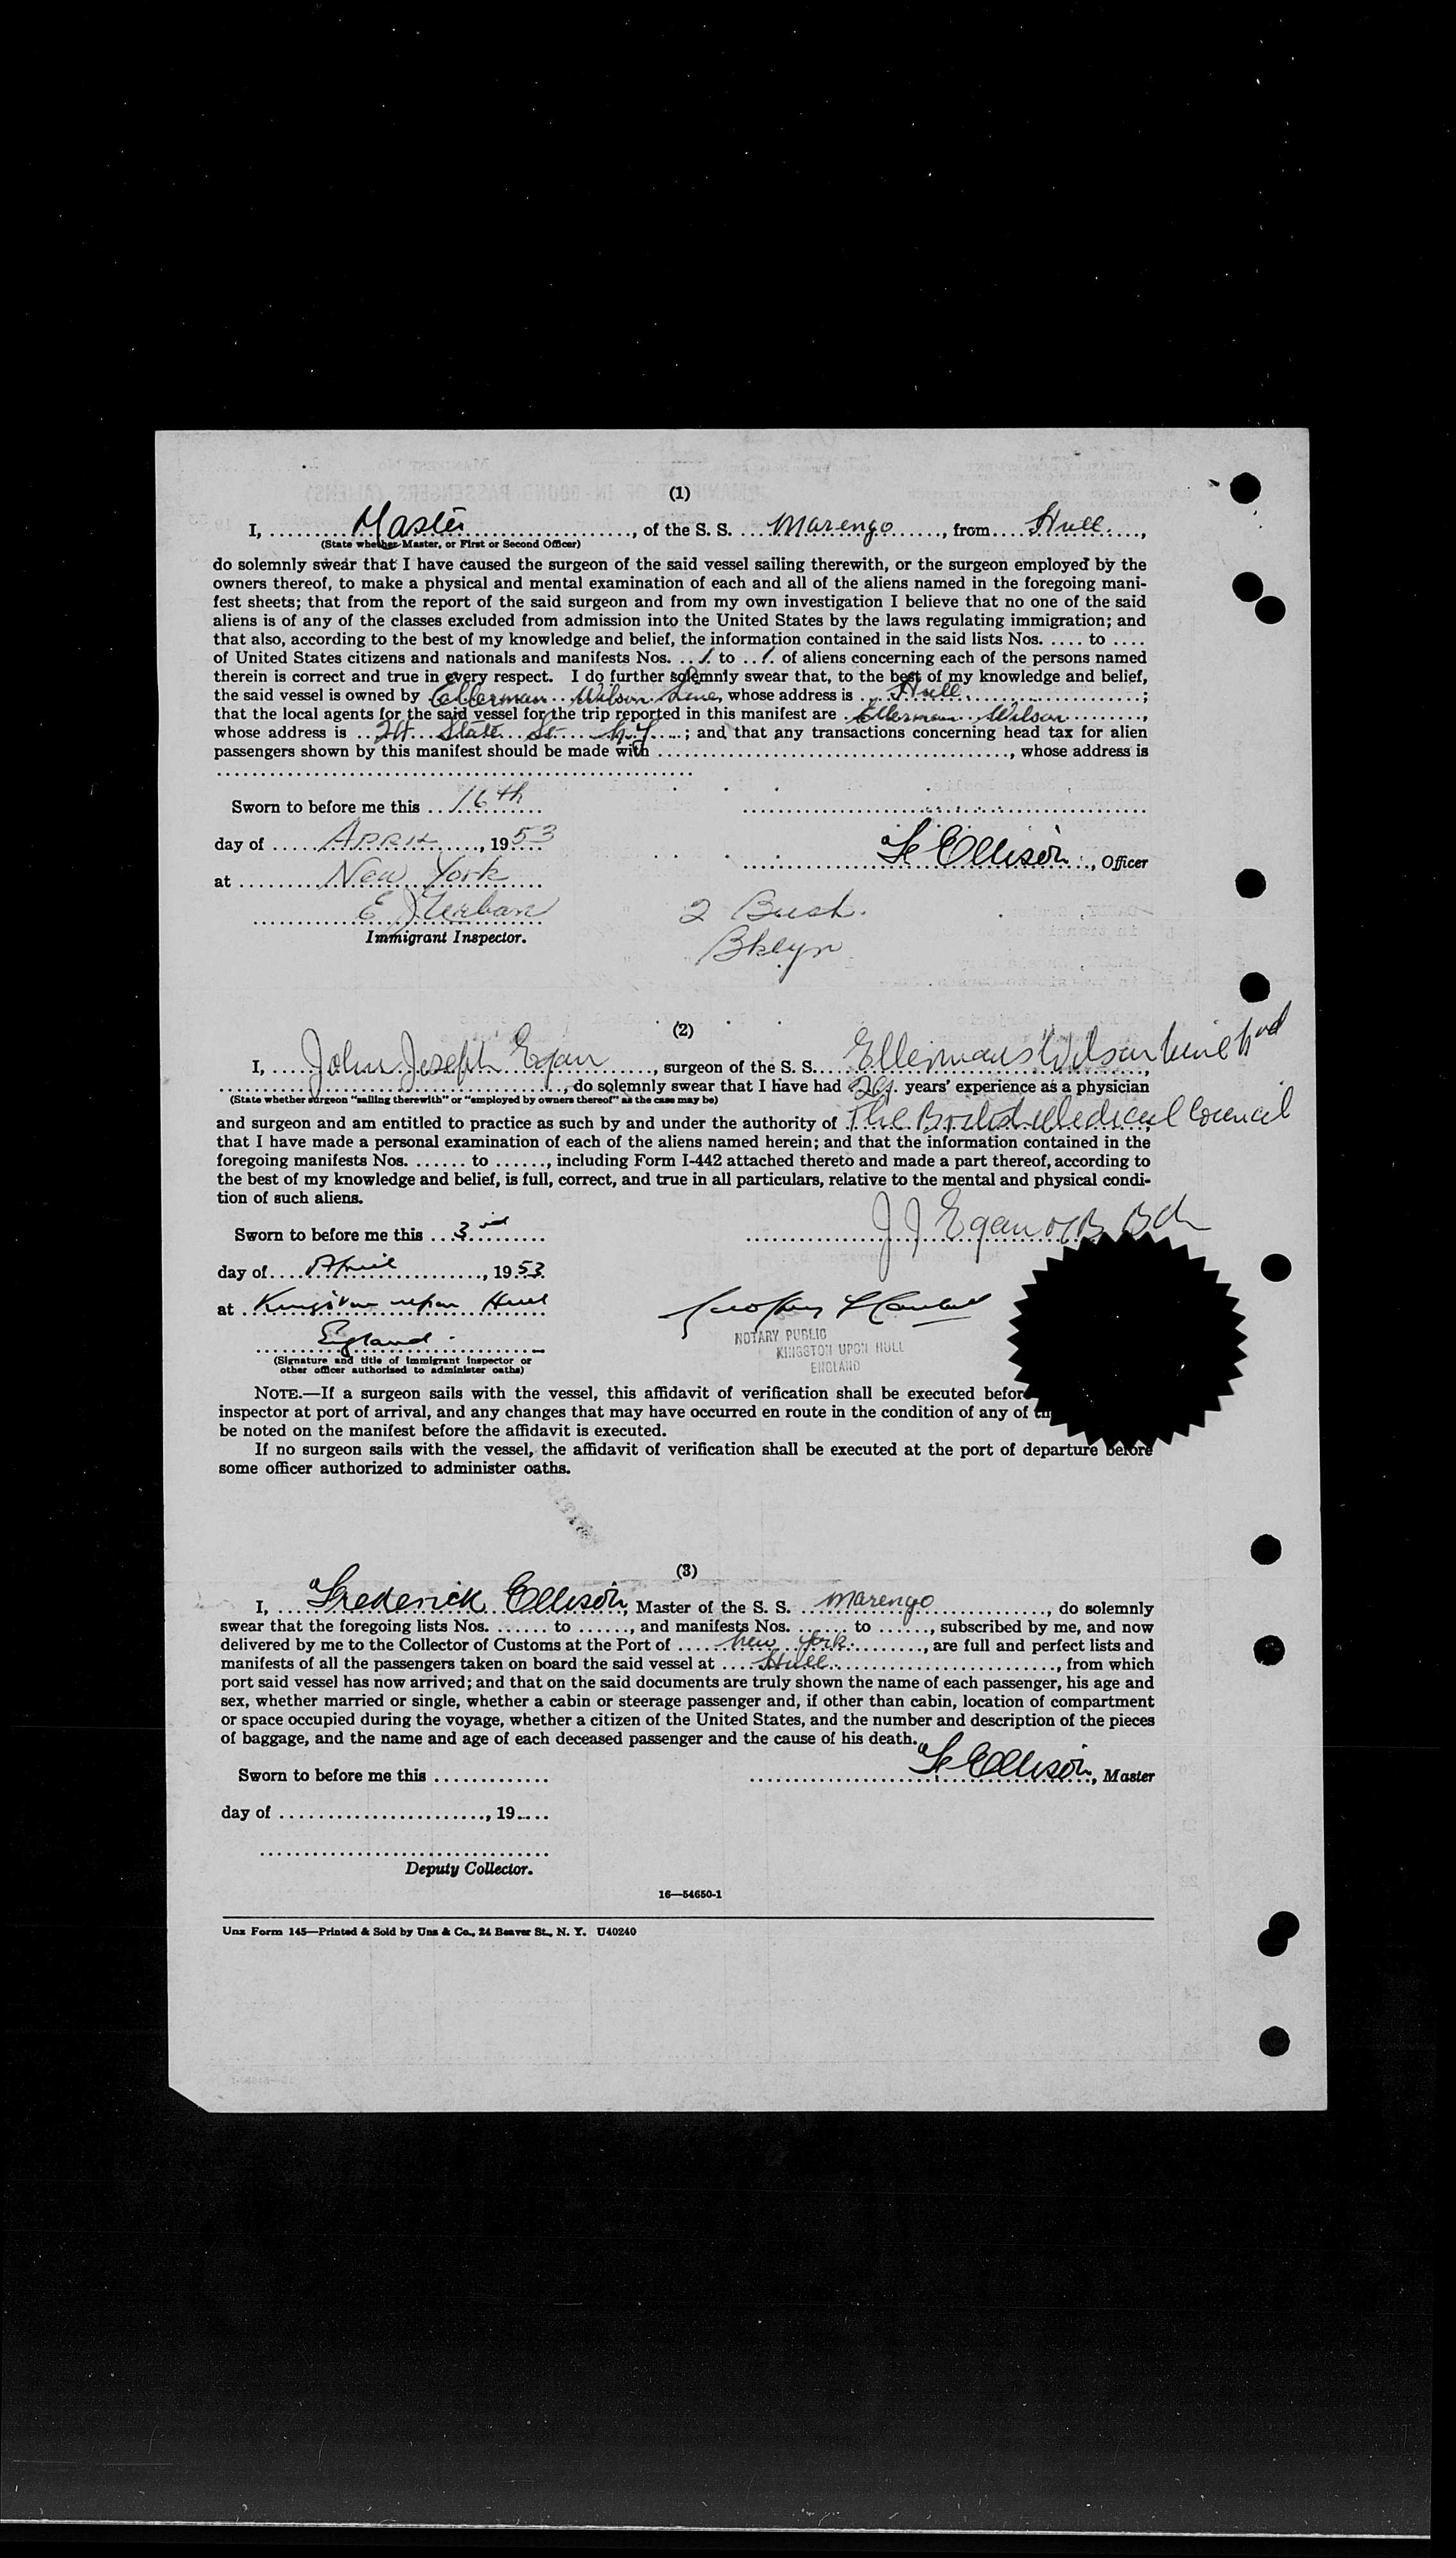 (1)
I, Master, of the S. S. Marengo, from Hull,
(State whether Master, or First or Second Officer)
do solemnly swear that I have caused the surgeon of the said vessel sailing therewith, or the surgeon employed by the
owners thereof, to make a physical and mental examination of each and all of the aliens named in the foregoing mani-
fest sheets; that from the report of the said surgeon and from my own investigation I believe that no one of the said
aliens is of any of the classes excluded from admission into the United States by the laws regulating immigration; and
that also, according to the best of my knowledge and belief, the information contained in the said lists Nos. .... to ....
of United States citizens and nationals and manifests Nos. 1 to 1 of aliens concerning each of the persons named
therein is correct and true in every respect. I do further solemnly swear that, to the best of my knowledge and belief,
the said vessel is owned by Ellerman Wilson Line, whose address is Hull;
that the local agents for the said vessel for the trip reported in this manifest are Ellerman Wilson,
whose address is 24 State St N.Y.; and that any transactions concerning head tax for alien
passengers shown by this manifest should be made with ...., whose address is
Sworn to before me this 16th
day of April, 1953
F Ellison, Officer
at New York
E J Urban
2 Bush.
Immigrant Inspector.
Bklyn
(2)
I, John Joseph Egan, surgeon of the S. S. Ellermans Wilson Line Ltd
, do solemnly swear that I have had years' experience as a physician
(State whether surgeon "sailing therewith" or "employed by owners thereof" as the case may be)
and surgeon and am entitled to practice as such by and under the authority of The British Medical Council
that I have made a personal examination of each of the aliens named herein; and that the information contained in the
foregoing manifests Nos. ...... to ......, including Form I-442 attached thereto and made a part thereof, according to
the best of my knowledge and belief, is full, correct, and true in all particulars, relative to the mental and physical condi-
tion of such aliens.
Sworn to before me this 3rd
J J Egan MB BCh
day of April, 1953
at Kingston upon Hull
England.
NOTARY PUBLIC
KINGSTON UPON HULL
ENGLAND
(Signature and title of immigrant inspector or
other officer authorized to administer oaths)
NOTE.—If a surgeon sails with the vessel, this affidavit of verification shall be executed before
inspector at port of arrival, and any changes that may have occurred en route in the condition of any of
be noted on the manifest before the affidavit is executed.
If no surgeon sails with the vessel, the affidavit of verification shall be executed at the port of departure before
some officer authorized to administer oaths.
(3)
I, Frederick Ellison, Master of the S. S. Marengo, do solemnly
swear that the foregoing lists Nos. ...... to ......, and manifests Nos. ...... to ......, subscribed by me, and now
delivered by me to the Collector of Customs at the Port of New York, are full and perfect lists and
manifests of all the passengers taken on board the said vessel at Hull, from which
port said vessel has now arrived; and that on the said documents are truly shown the name of each passenger, his age and
sex, whether married or single, whether a cabin or steerage passenger and, if other than cabin, location of compartment
or space occupied during the voyage, whether a citizen of the United States, and the number and description of the pieces
of baggage, and the name and age of each deceased passenger and the cause of his death.
Sworn to before me this ............
F Ellison, Master
day of ......................, 19....
Deputy Collector.
16—54650-1
Unz Form 145—Printed & Sold by Unz & Co., 24 Beaver St., N. Y. U40240